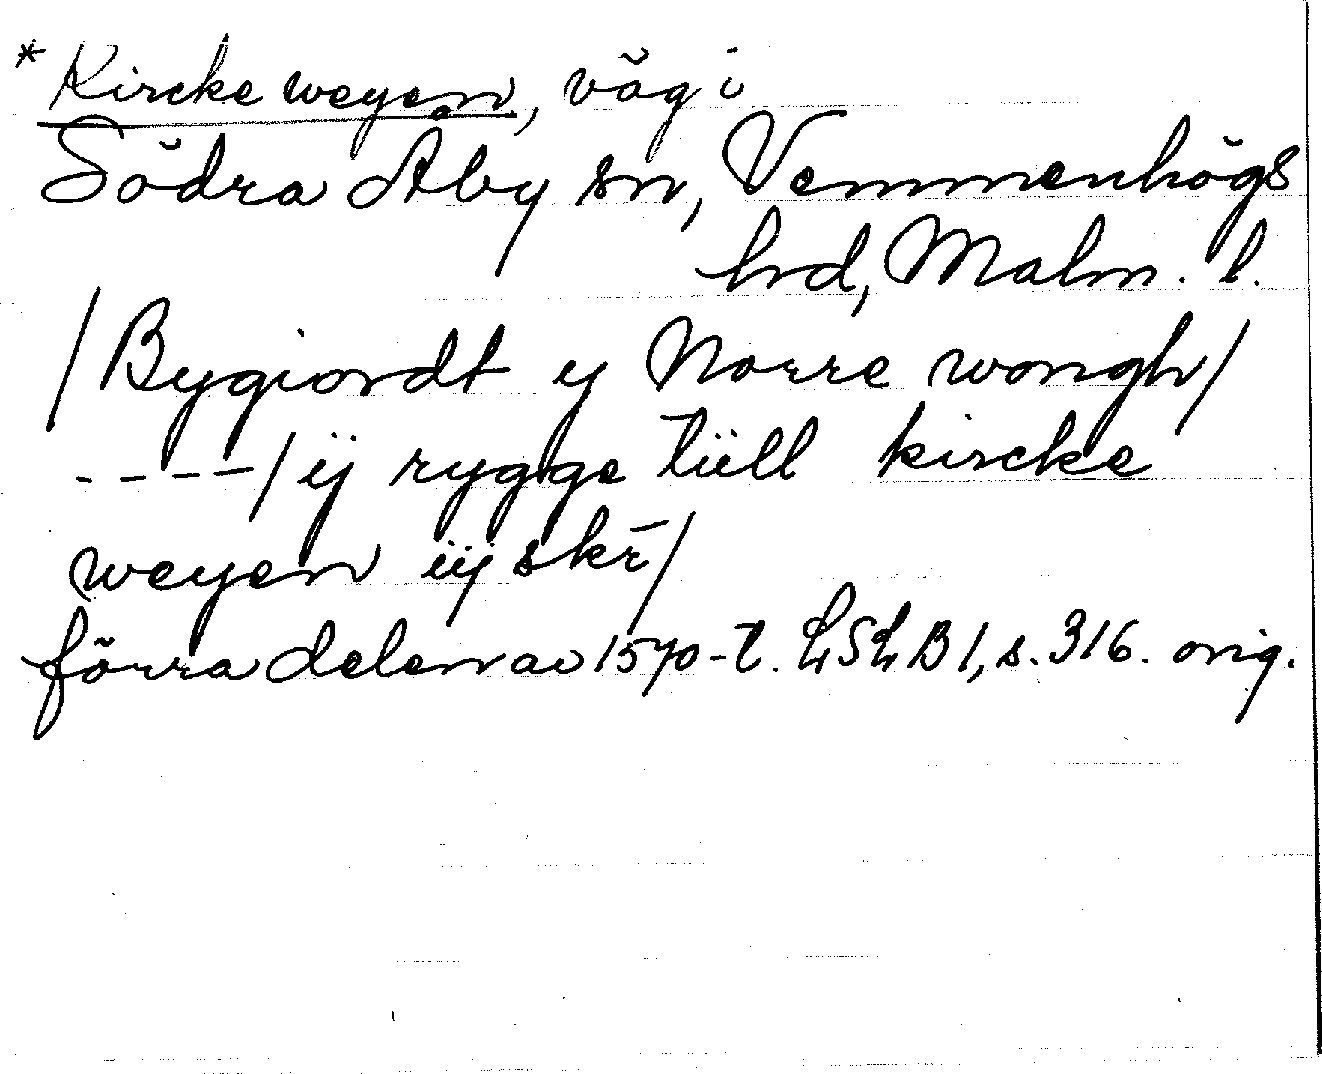 * Kircke weyen, väg i
Södra Åby sn, Vemmenhögs
hrd, Malm. l.
/Bygiordt y Norre wongh/
----/ij rygge tiill kircke
weyen iij skr̄/
förra delen av 1570-t. LSLB1, s. 316. orig.